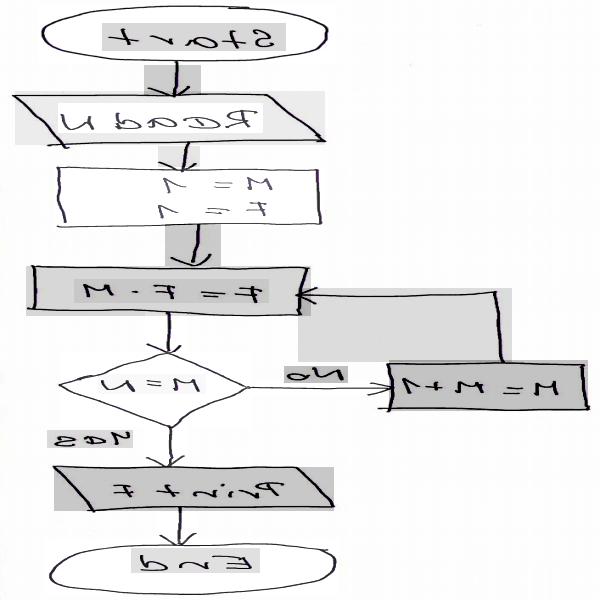 Start
Read N
M = 1
F = 1
F = F · M
M = N
No
M = M + 1
Yes
Print F
End